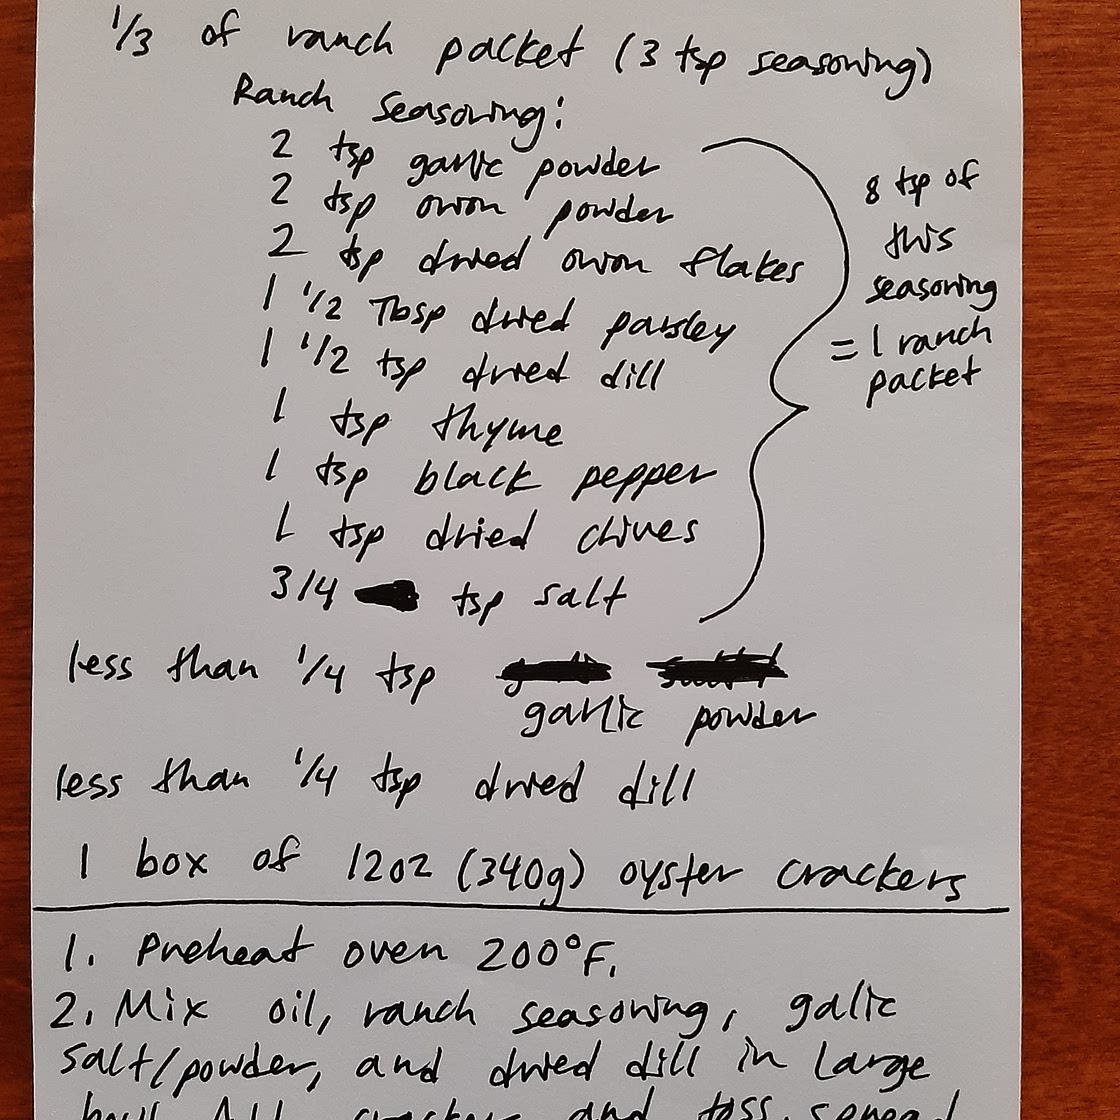 1/3 of ranch packet (3 tsp seasoning)
Ranch seasoning:
2 tsp garlic powder
2 tsp onion powder
2 tsp dried onion flakes
1 1/2 Tbsp dried parsley
1 1/2 tsp dried dill
1 tsp thyme
1 tsp black pepper
1 tsp dried chives
3/4 tsp salt
8 tsp of
this
seasoning
= 1 ranch
packet
less than 1/4 tsp
garlic powder
less than 1/4 tsp dried dill
1 box of 12oz (340g) oyster crackers
1. Preheat oven 200°F.
2. Mix oil, ranch seasoning, galic
salt/powder, and dried dill in large
bowl. Add crackers and toss. spread